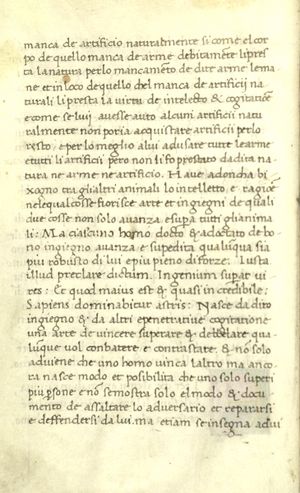 manca de artificio naturalmente si come el cor
po de quello manca de arme debitamẽte li pres
ta la natura per lo mancamẽto de ditte arme le ma
ne et in loco de quello che l manca de artificii na
turali li presta la virtu de intelecto & cogitatiõe
e come se lui avesse auto alcuni artificii natu
ralmente non poria acquistare artificii per lo
resto e per lo meglio alui ad usare tutte le arme
e tutti li artificii pero non li fo prestato da dita na
tura ne arme ne artificio. H ave adoncha bi
xogno tra gli altri animali lo intelletto e ragiõe
ne le qual cosse fiorisce arte et ingiegni de quali
due cosse non solo avanza e supa tutti gli anima
li: Ma ciascuno homo docto & adoctato de bo
no ingiegno avanza e supedita qualuqua sia
piu robusto di lui e piu pieno di forze: Iusta
illud preclare dictum. Ingenium supat vi
res: Et quod maius est & quasi incredibile:
Sapiens dominabitur astris: Nasce da dito
ingiegno & da altri e penetrative cogitatione
una arte de vincere superare & debelare qua
luque vol conbatere e contrastare & nõ solo
adviene che uno homo vinca laltro ma anco
ra nasce modo et posibilita che uno solo superi
piu psone e nõ se mostra solo el modo & docu
mento de assaltare lo adversario et repararsi
e deffendersi da lui. ma etiam se insegna advi